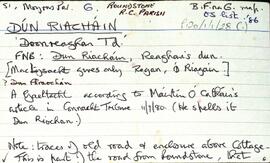 S1, Moyrus Par. G. ROUNDSTONE R.C. PARISH B. Fina G. map.
OS list '86
DÚN RIACHÁIN
Doonreaghan Td.
FNB: Dun Riacháin, Reaghan's dun.
[MacLysacht gives only Regan, Ó Riagáin]
A Gaeltacht according to Máirtín Ó Catháin's
article in Connacht Tribune 11/7/80. (He spells it
Dun Riochan.)
Note: traces of old road & enclosure above Cottage.
(This is part of the road from Roundstone,